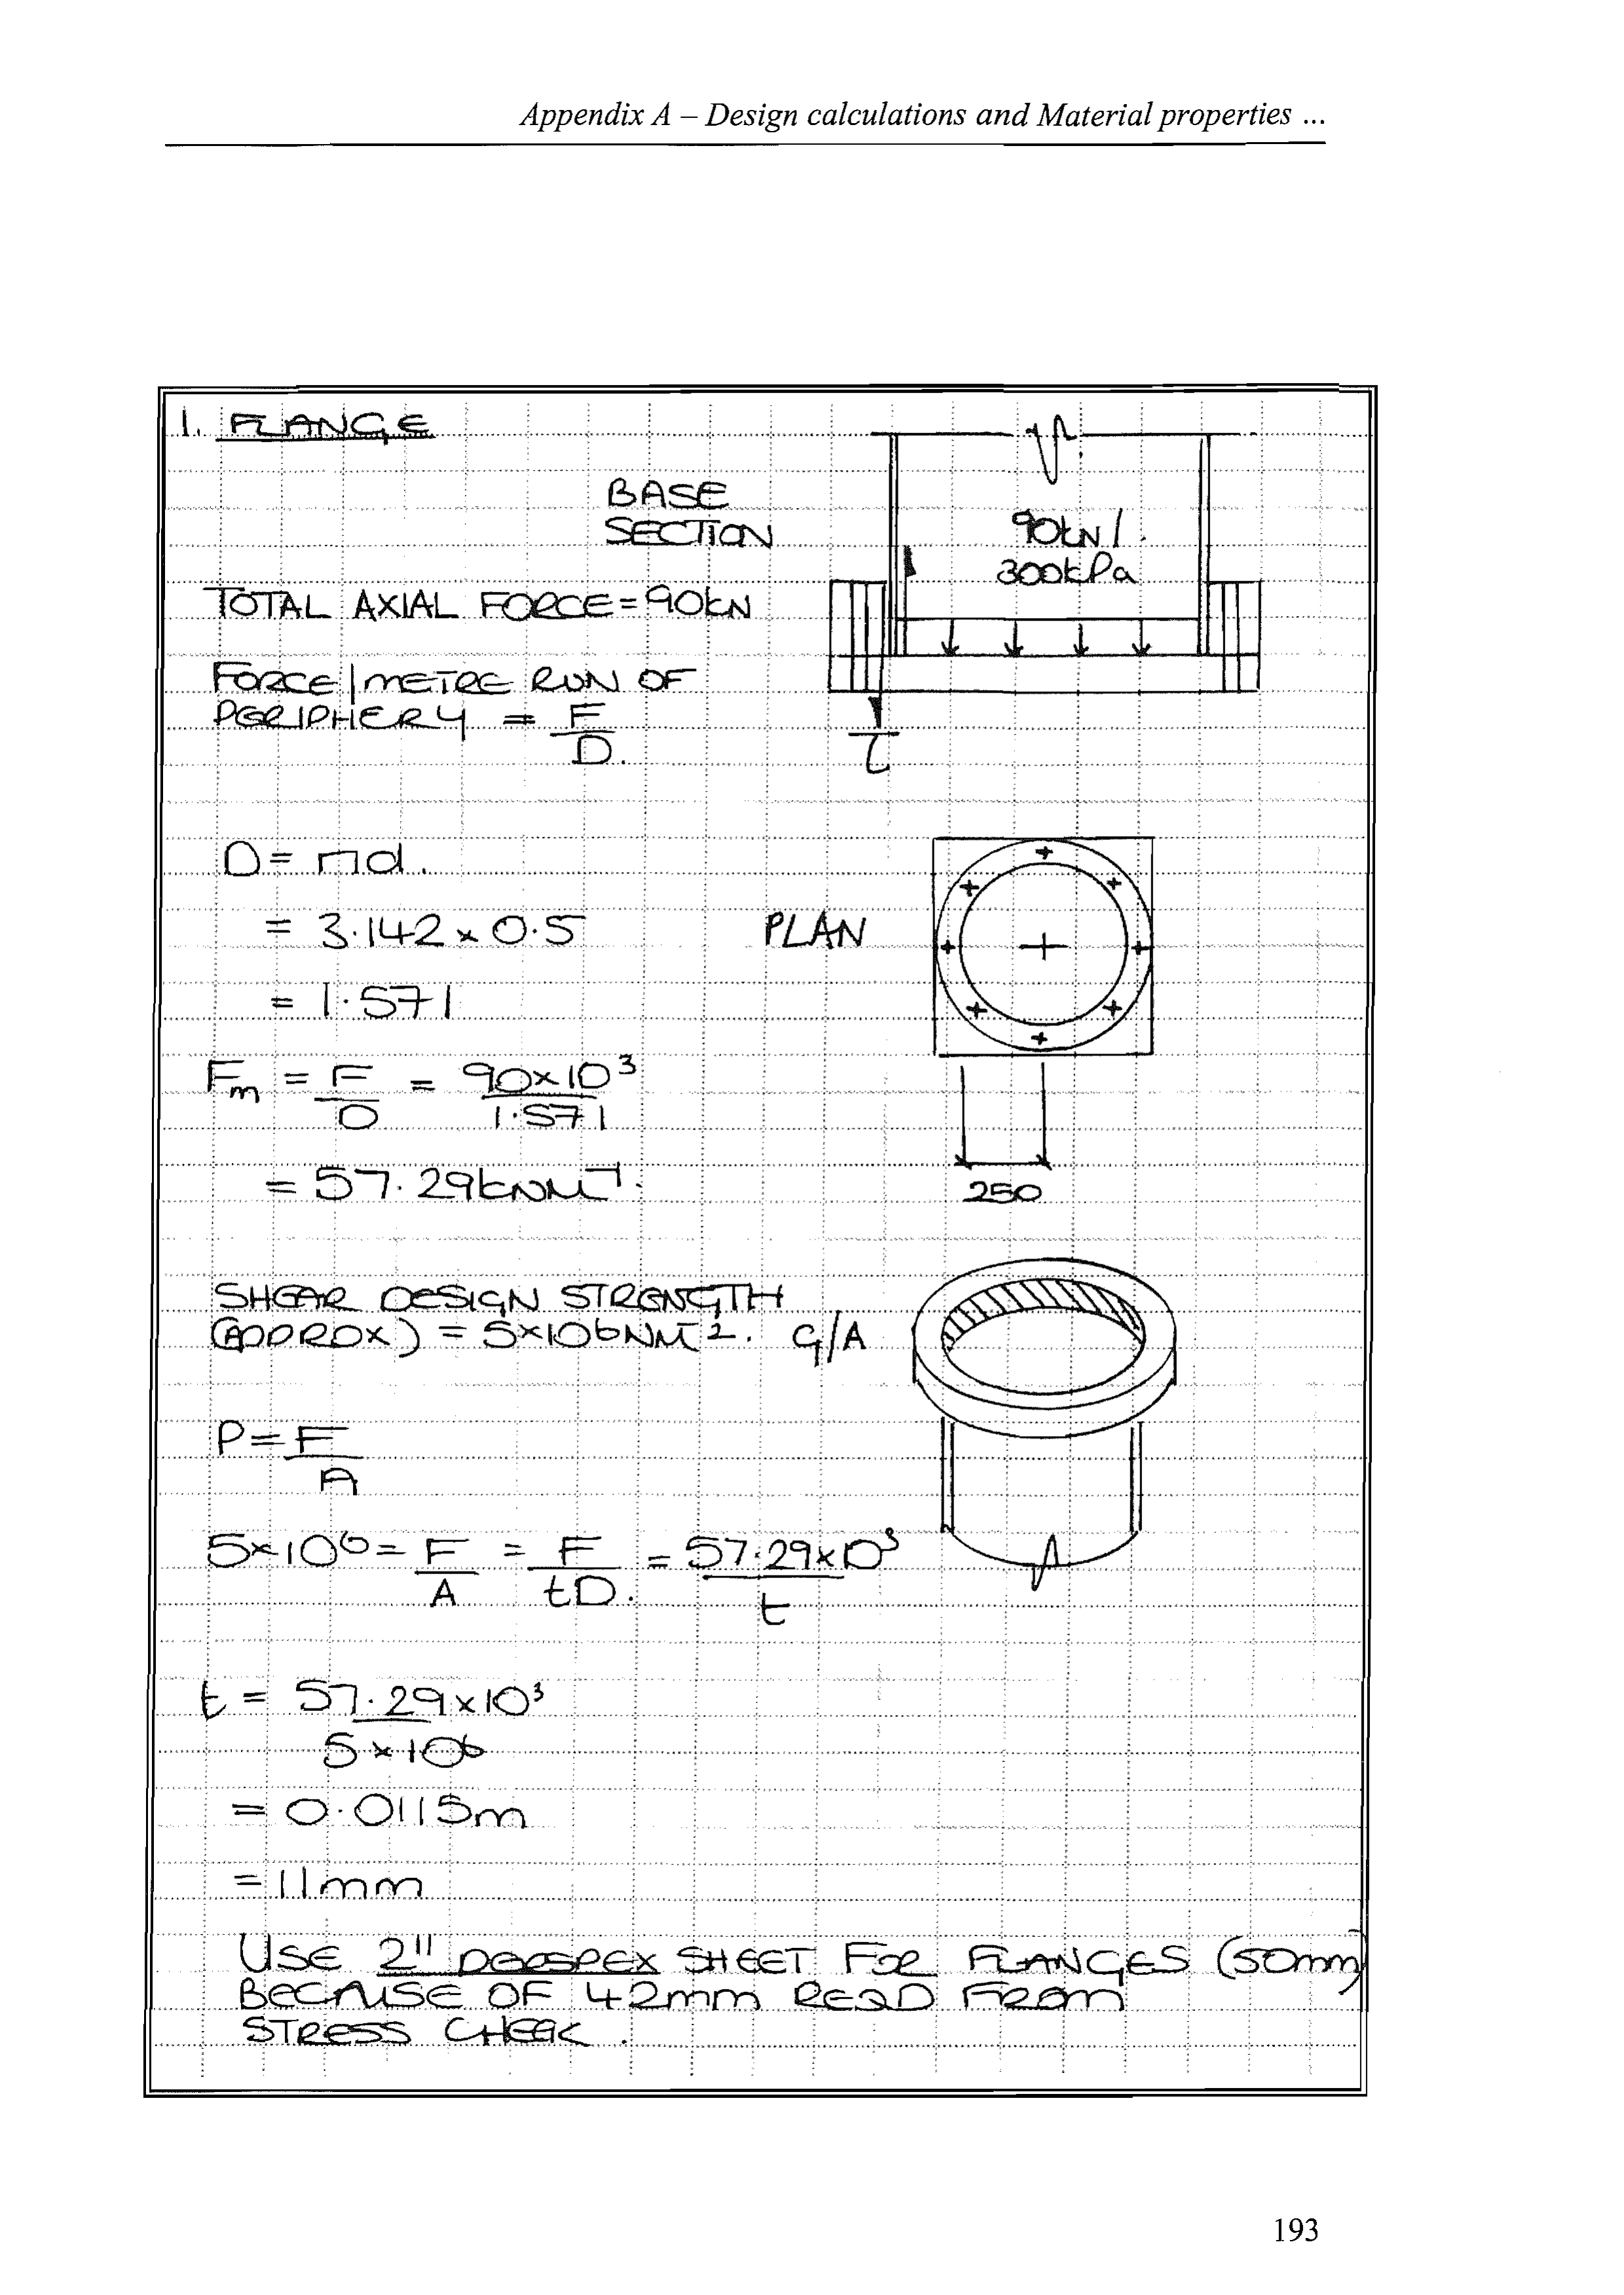 Appendix A – Design calculations and Material properties ...
1. FLANGE
BASE
SECTION
90kN/
300kPa
TOTAL AXIAL FORCE = 90kN
FORCE/METRE RUN OF
PERIPHERY = F
D.
τ
D = πd.
= 3.142 × 0.5
PLAN
= 1.571
Fm = F = 90×10³
D 1.571
= 57.29kNM⁻¹.
250
SHEAR DESIGN STRENGTH
(APPROX) = 5×10⁶NM⁻². G/A
P = F
A
5×10⁶ = F = F = 57.29×10³
A tD. t
t = 57.29×10³
5×10⁶
= 0.0115m
= 11mm
USE 2" SHEET FOR FLANGES (50mm)
BECAUSE OF 42mm REQD FROM
STRESS CHECK.
193